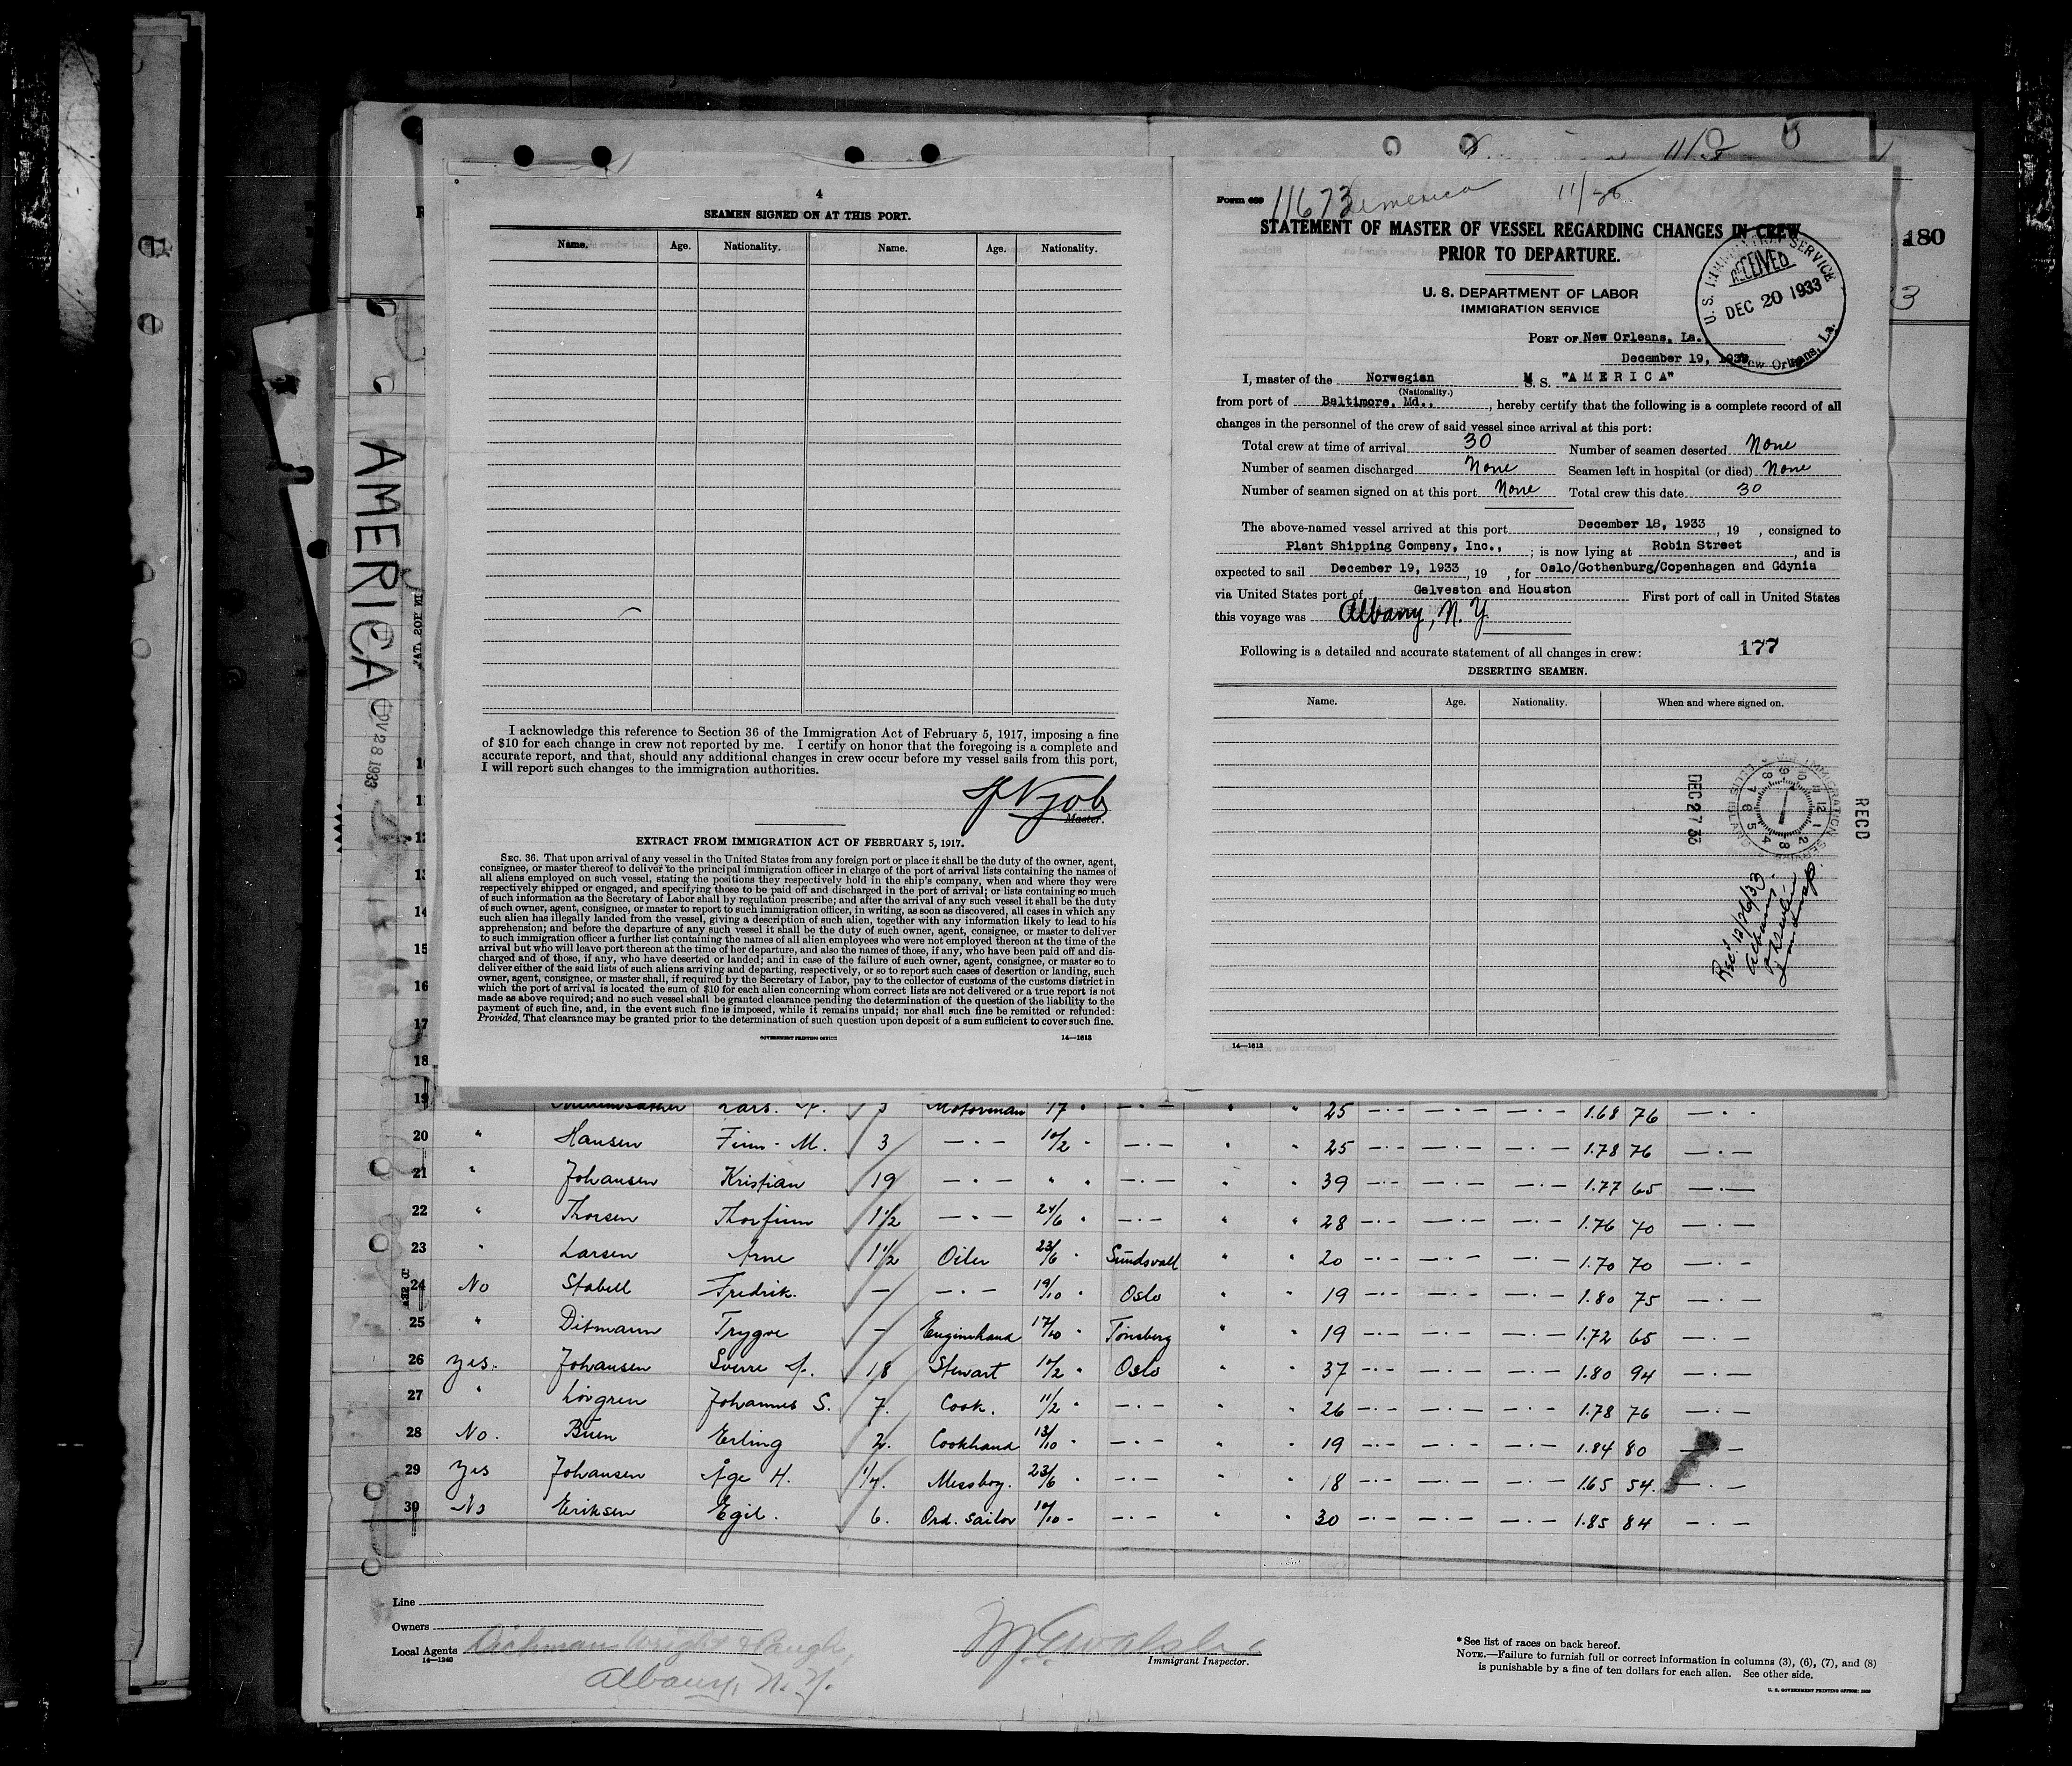 4
SEAMEN SIGNED ON AT THIS PORT.
Name. Age. Nationality. Name. Age. Nationality.
I acknowledge this reference to Section 36 of the Immigration Act of February 5, 1917, imposing a fine
of $10 for each change in crew not reported by me. I certify on honor that the foregoing is a complete and
accurate report, and that, should any additional changes in crew occur before my vessel sails from this port,
I will report such changes to the immigration authorities.
Master.
EXTRACT FROM IMMIGRATION ACT OF FEBRUARY 5, 1917.
SEC. 36. That upon arrival of any vessel in the United States from any foreign port or place it shall be the duty of the owner, agent,
consignee, or master thereof to deliver to the principal immigration officer in charge of the port of arrival lists containing the names of
all aliens employed on such vessel, stating the positions they respectively hold in the ship's company, when and where they were
respectively shipped or engaged, and specifying those to be paid off and discharged in the port of arrival; or lists containing so much
of such information as the Secretary of Labor shall by regulation prescribe; and after the arrival of any such vessel it shall be the duty
of such owner, agent, consignee, or master to report to such immigration officer, in writing, as soon as discovered, all cases in which any
such alien has illegally landed from the vessel, giving a description of such alien, together with any information likely to lead to his
apprehension; and before the departure of any such vessel it shall be the duty of such owner, agent, consignee, or master to deliver
to such immigration officer a further list containing the names of all alien employees who were not employed thereon at the time of the
arrival but who will leave port thereon at the time of her departure, and also the names of those, if any, who have been paid off and dis-
charged and of those, if any, who have deserted or landed; and in case of the failure of such owner, agent, consignee, or master so to
deliver either of the said lists of such aliens arriving and departing, respectively, or so to report such cases of desertion or landing, such
owner, agent, consignee, or master shall, if required by the Secretary of Labor, pay to the collector of customs of the customs district in
which the port of arrival is located the sum of $10 for each alien concerning whom correct lists are not delivered or a true report is not
made as above required; and no such vessel shall be granted clearance pending the determination of the question of the liability to the
payment of such fine, and, in the event such fine is imposed, while it remains unpaid; nor shall such fine be remitted or refunded:
Provided, That clearance may be granted prior to the determination of such question upon deposit of a sum sufficient to cover such fine.
GOVERNMENT PRINTING OFFICE 14—1613
Form 689 11673 America 11/28
STATEMENT OF MASTER OF VESSEL REGARDING CHANGES IN CREW
PRIOR TO DEPARTURE.
U. S. DEPARTMENT OF LABOR
IMMIGRATION SERVICE
U. S. IMMIGRATION SERVICE
RECEIVED
DEC 20 1933
New Orleans, La.
PORT OF New Orleans, La.
December 19, 1933
I, master of the Norwegian M S. S. "A M E R I C A"
(Nationality.)
from port of Baltimore, Md., , hereby certify that the following is a complete record of all
changes in the personnel of the crew of said vessel since arrival at this port:
Total crew at time of arrival 30 Number of seamen deserted None
Number of seamen discharged None Seamen left in hospital (or died) None
Number of seamen signed on at this port None Total crew this date 30
The above-named vessel arrived at this port December 18, 1933 , 19 , consigned to
Plant Shipping Company, Inc., ; is now lying at Robin Street , and is
expected to sail December 19, 1933 , 19 , for Oslo/Gothenburg/Copenhagen and Gdynia
via United States port of Galveston and Houston First port of call in United States
this voyage was Albany, N. Y.
Following is a detailed and accurate statement of all changes in crew: 177
DESERTING SEAMEN.
Name. Age. Nationality. When and where signed on.
RECD
DEC 27 33
Rec'd 12/26/33
14—1613
180
3
AMERICA
NOV 28 1933
10
11
12
13
14
15
16
17
18
19 Lars. 3 Motorman 17 " —·— " " 25 —·— —·— —·— 1.68 76 —·—
20 " Hansen Finn. M. 3 —·— 10/2 " —·— " " 25 —·— —·— —·— 1.78 76 —·—
21 " Johansen Kristian 19 —·— " " —·— " " 39 —·— —·— —·— 1.77 65 —·—
22 " Thorsen Thorfinn 1 1/2 —·— 24/6 " —·— " " 28 —·— —·— —·— 1.76 70 —·—
23 " Larsen Arne 1 1/2 Oiler 23/6 " Sundsvall " " 20 —·— —·— —·— 1.70 70 —·—
24 No Stabell Fredrik. — —·— 19/10 " Oslo " " 19 —·— —·— —·— 1.80 75 —·—
25 " Ditmann Trygve — Enginehand 17/10 " Tønsberg " " 19 —·— —·— —·— 1.72 65 —·—
26 Yes. Johansen Sverre 18 Stewart 10/2 " Oslo " " 37 —·— —·— —·— 1.80 94 —·—
27 " Lövgren Johannes S. 7. Cook. 11/2 " —·— " " 26 —·— —·— —·— 1.78 76 —·—
28 No. Buen Erling 2. Cookhand 13/10 " —·— " " 19 —·— —·— —·— 1.84 80 —·—
29 Yes Johansen Åge H. Messboy. 23/6 " —·— " " 18 —·— —·— —·— 1.65 54. —·—
30 No Eriksen Egil. 6. Ord. sailor 10/10 - —·— " " 30 —·— —·— —·— 1.85 84 —·—
Line
Owners
Local Agents
14—1240
Albany, N. Y.
Immigrant Inspector.
* See list of races on back hereof.
NOTE.—Failure to furnish full or correct information in columns (3), (6), (7), and (8)
is punishable by a fine of ten dollars for each alien. See other side.
U. S. GOVERNMENT PRINTING OFFICE: